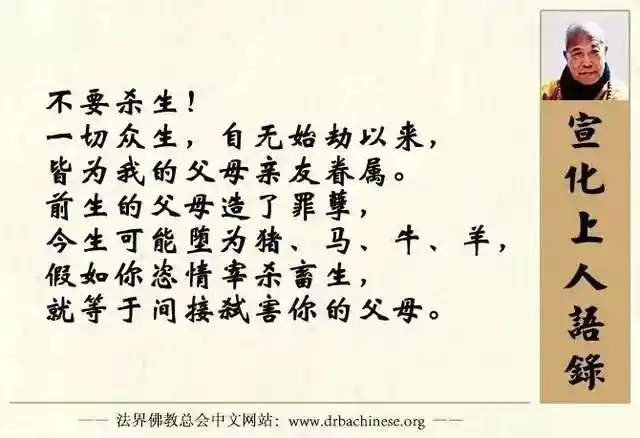 不要杀生！
一切众生，自无始劫以来，
皆为我的父母亲友眷属。
前生的父母造了罪孽，
今生可能堕为猪、马、牛、羊，
假如你恣情宰杀畜生，
就等于间接弑害你的父母。
宣化上人語錄
—— 法界佛教总会中文网站：www.drbachinese.org ——